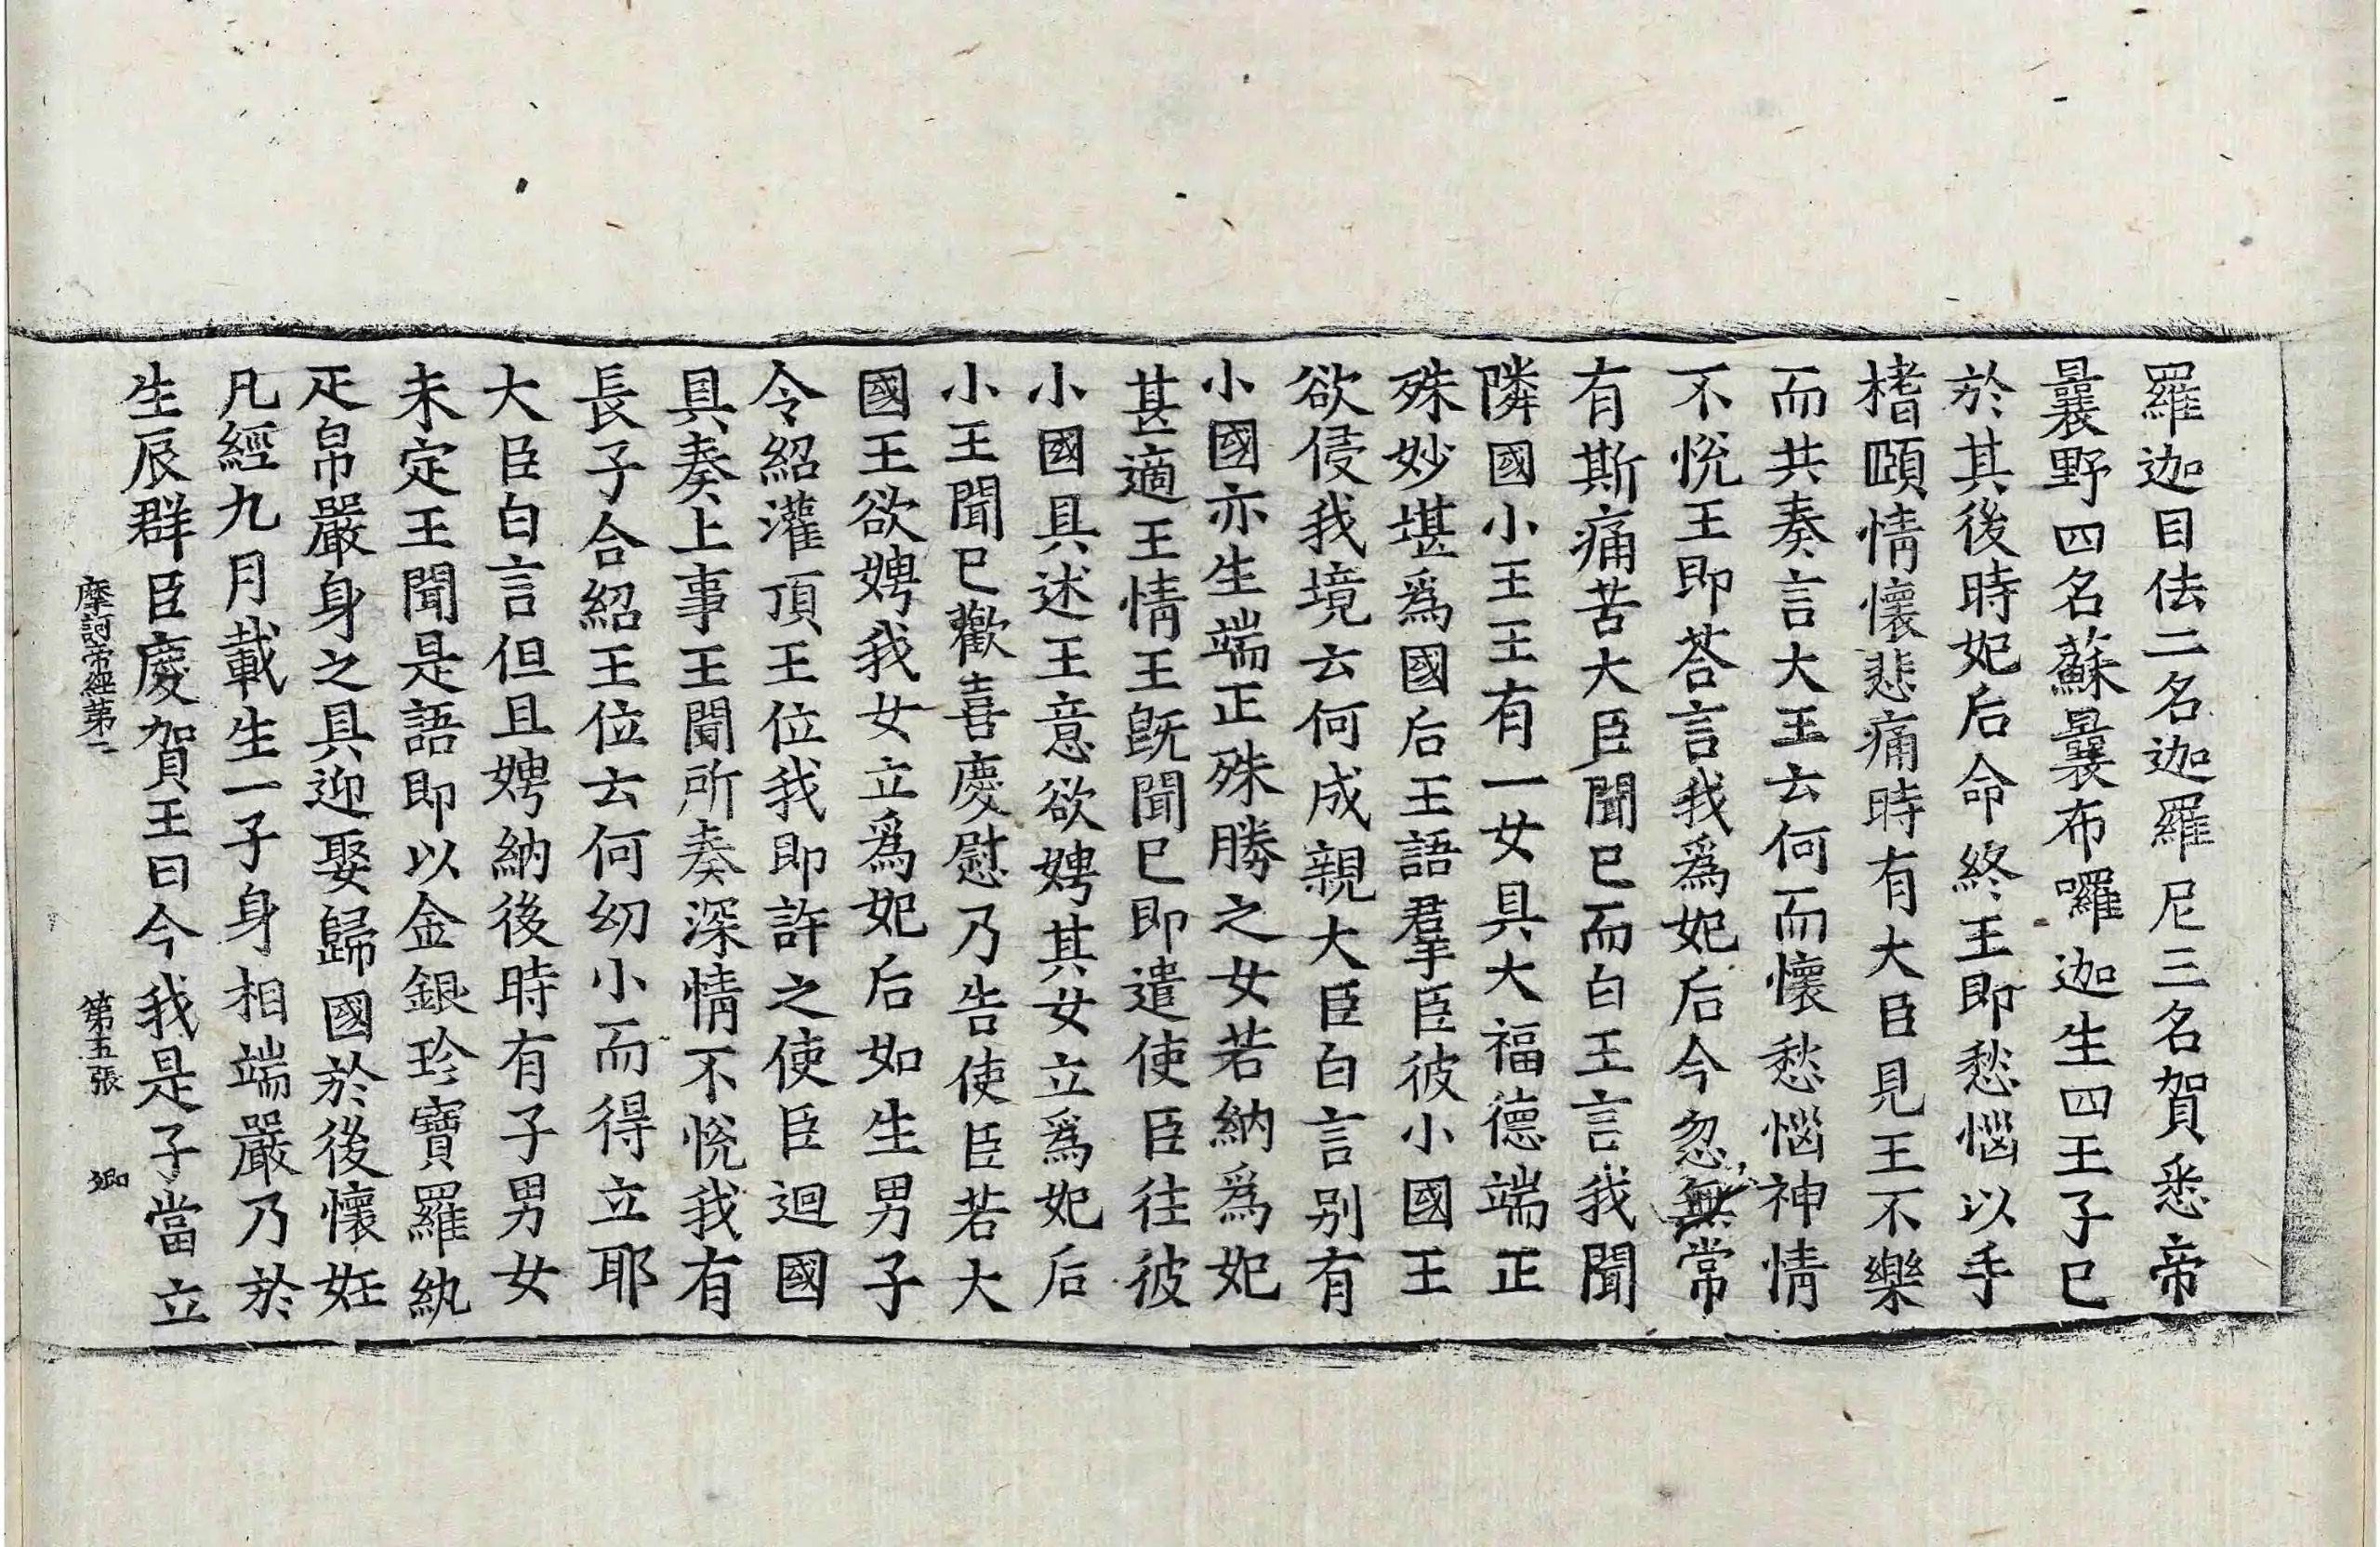 羅迦目佉二名迦羅尼三名賀悉帝
曩野四名蘇曩布囉迦生四王子已
於其後時妃后命終王即愁惱以手
㨪頤情懷悲痛時有大臣見王不樂
而共奏言大王云何而懷愁惱神情
不悅王即荅言我爲妃后今忽無常
有斯痛苦大臣聞已而白王言我聞
隣國小王王有一女具大福德端正
殊妙堪爲國后王語羣臣彼小國王
欲侵我境云何成親大臣白言别有
小國亦生端正殊勝之女若納爲妃
甚適王情王旣聞已即遣使臣往彼
小國具述王意欲娉其女立爲妃后
小王聞已歡喜慶慰乃告使臣若大
國王欲娉我女立爲妃后如生男子
令紹灌頂王位我即許之使臣迴國
具奏上事王聞所奏深情不悅我有
長子合紹王位云何幼小而得立耶
大臣白言但且娉納後時有子男女
未定王聞是語即以金銀珍寶羅紈
疋帛嚴身之具迎娶歸國於後懷妊
凡經九月載生一子身相端嚴乃於
生辰群臣慶賀王曰今我是子當立
摩訶帝經第二 第五張 卿